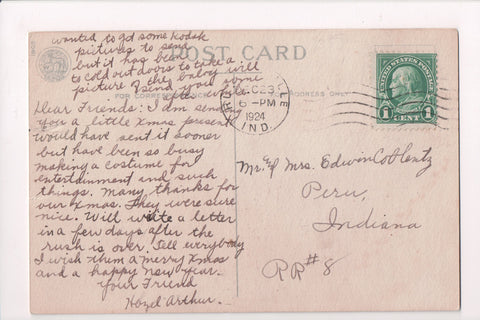 wanted to get some kodak
pictures to send
but it has been
to cold out doors to take a
picture of the baby will
send you some
after while.
POST CARD
FOR CORRESPONDENCE
FOR ADDRESS ONLY
Dear Friends: I am send
you a little Xmas present
would have sent it sooner
but have been so busy
making a costume for
entertainment and such
things. Many thanks for
our Xmas. They were sure
nice. Will write a letter
in a few days after the
rush is over. Tell everybody
I wish them a merry Xmas
and a happy new year.
your Friend
Hazel Arthur.
DEC 23
6-PM
1924
IND.
UNITED STATES POSTAGE
1 CENT 1
Mr. & Mrs. Edwin
Peru,
Indiana
RR#8